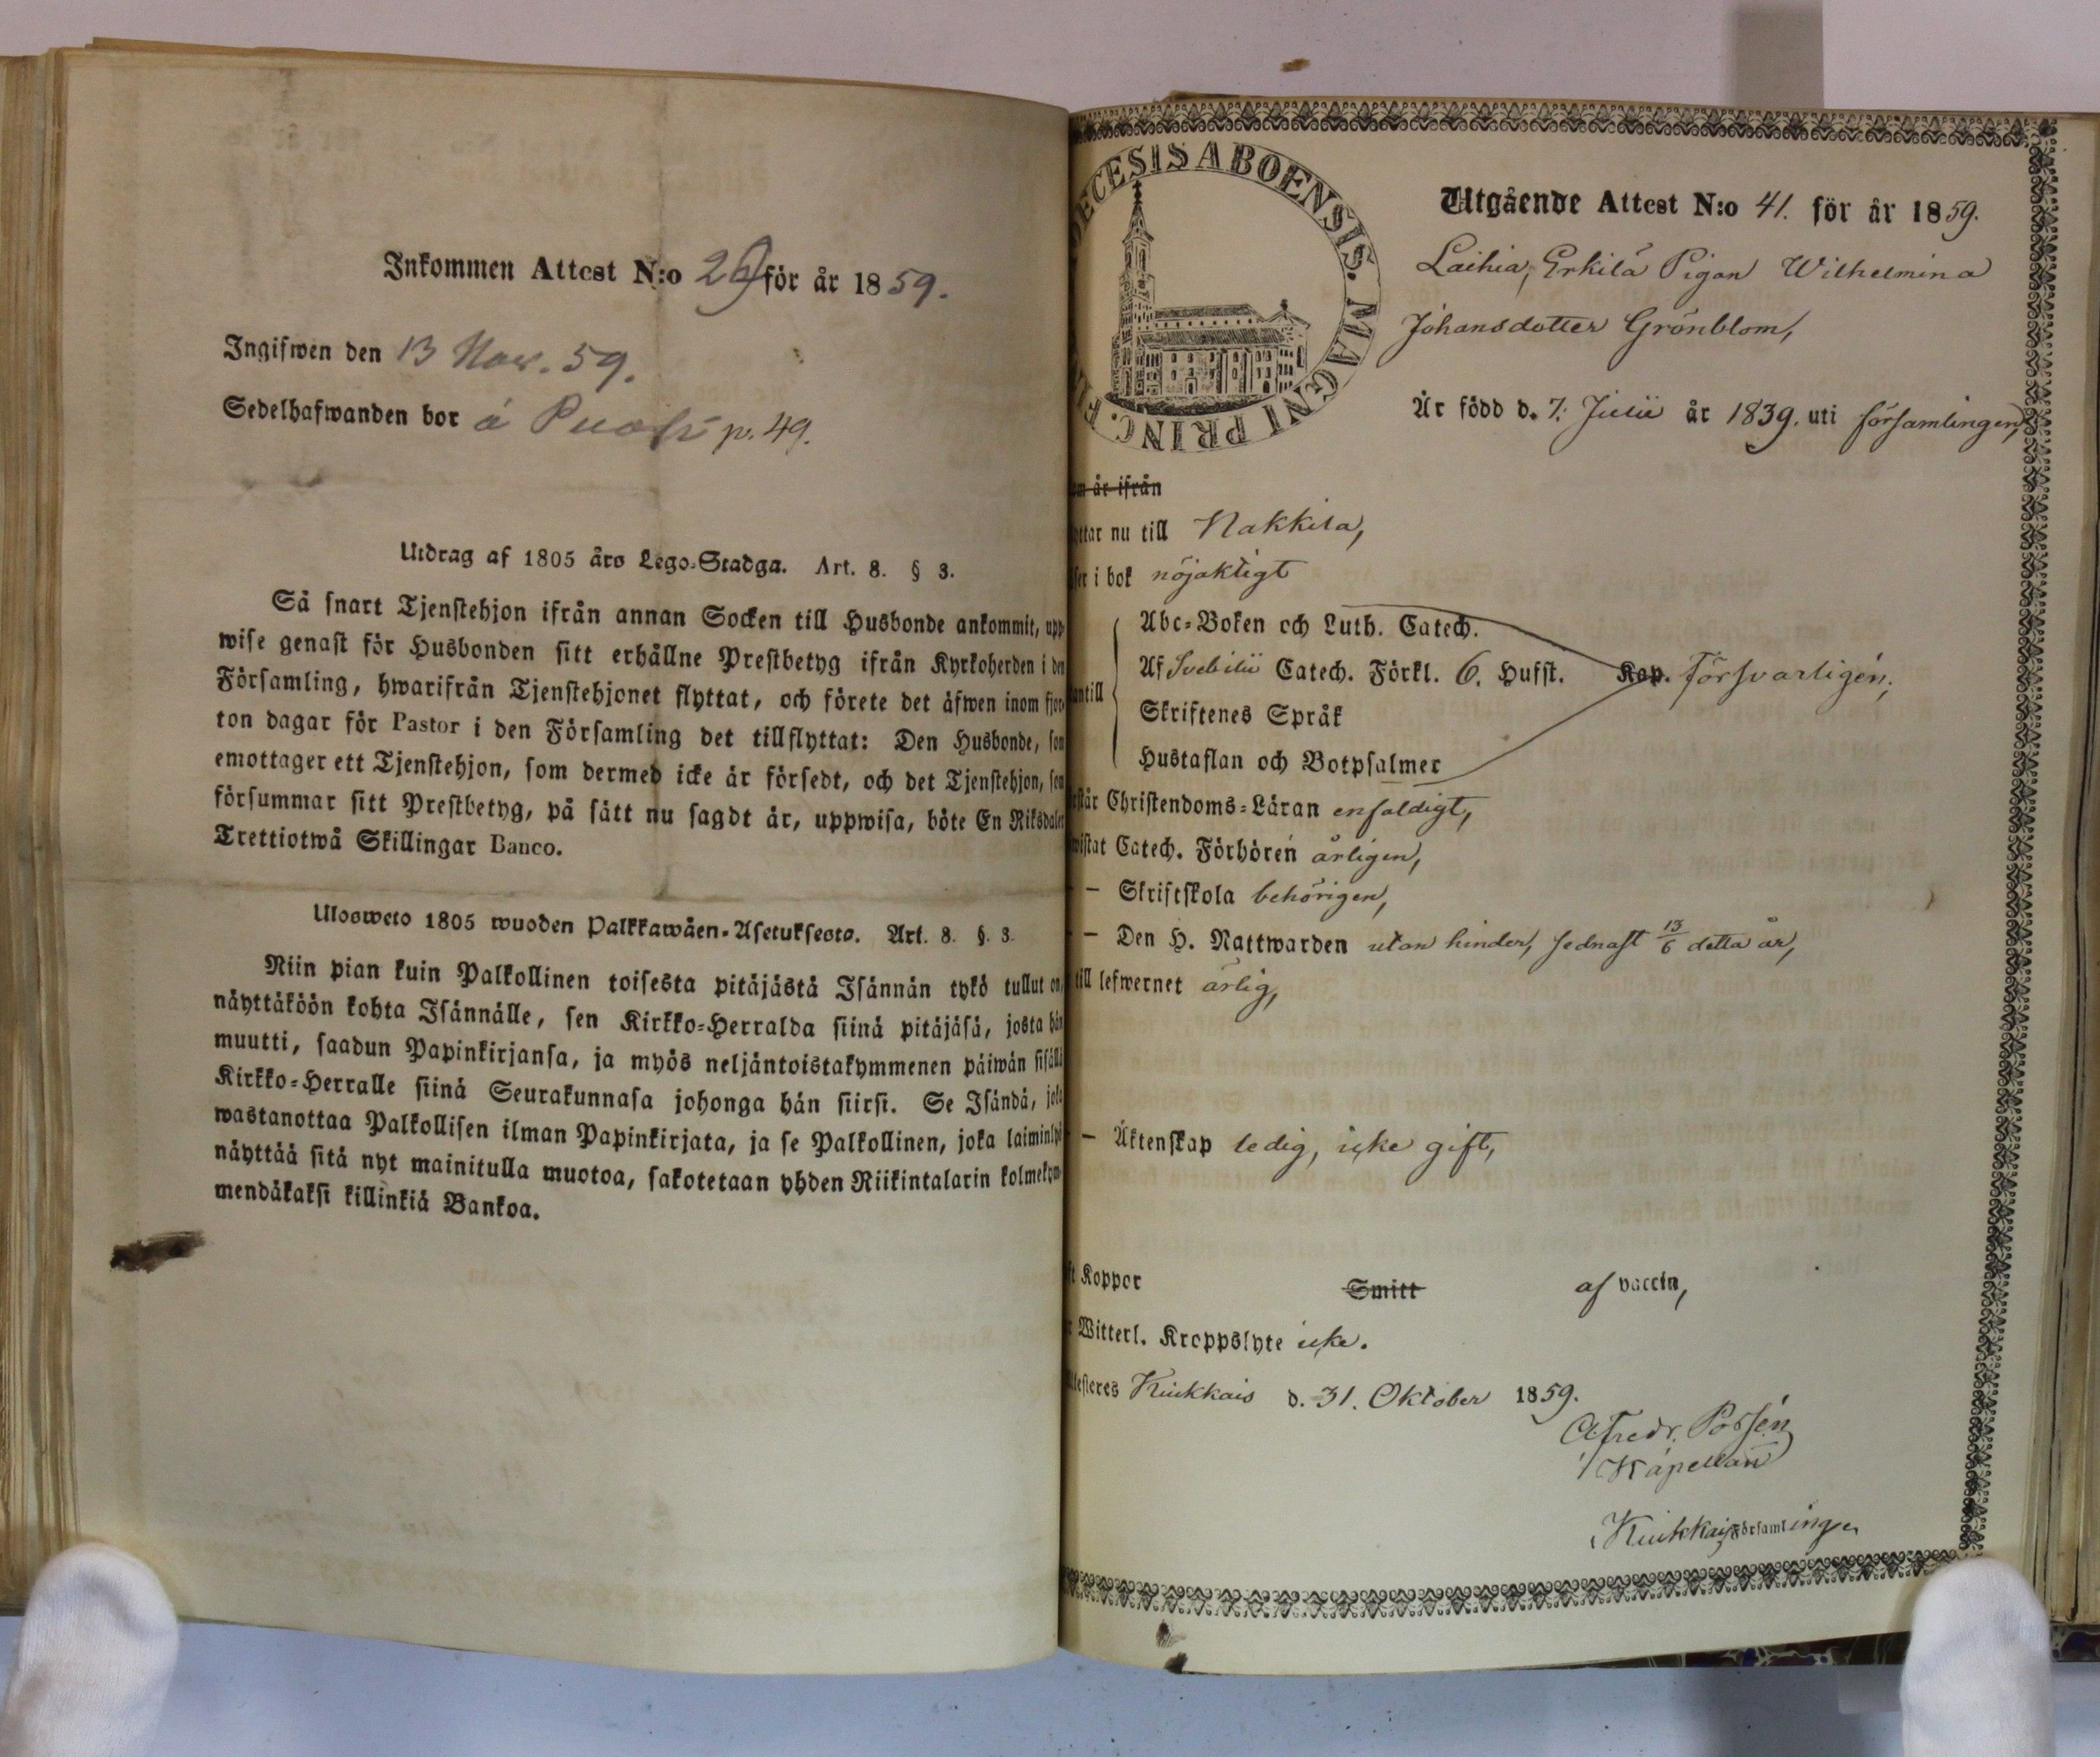 Inkommen Attest N:o 29 för år 1859.
Ingifwen den 13 Nov. 59.
Sedelhafwanden bor á p. 49.
Utdrag af 1805 års Lego-Stadga. Art. 8. § 3.
Så snart Tjenstehjon ifrån annan Socken till Husbonde ankommit, upp
wise genast för Husbonden sitt erhållne Prestbetyg ifrån Kyrkoherden i den
Församling, hwarifrån Tjenstehjonet flyttat, och förete det äfwen inom fjor-
ton dagar för Pastor i den Församling det tillflyttat: Den Husbonde, som
emottager ett Tjenstehjon, som dermed icke är försedt, och det Tjenstehjon, som
försummar sitt Prestbetyg, på sätt nu sagdt är, uppwisa, böte En Riksdaler
Trettiotwå Skillingar Banco.
Ulosweto 1805 wuoden Palkkawäen-Asetuksesta. Art. 8. §. 3.
Niin pian kuin Palkollinen toisesta pitäjästä Isännän tykö tullut on,
näyttäköön kohta Isännälle, sen Kirkko-Herralda siinä pitäjäsä, josta hän
muutti, saadun Papinkirjansa, ja myös neljäntoistakymmenen päiwän sisällä
Kirkko-Herralle siinä Seurakunnasa johonga hän siirsi. Se Isändä, joka
wastanottaa Palkollisen ilman Papinkirjata, ja se Palkollinen, joka laiminlyö
näyttää sitä nyt mainitulla muotoa, sakotetaan yhden Riikintalarin kolmekym-
mendäkaksi killinkiä Bankoa.
ECESIS ABOENSIS. MAGNI PRINC. F
Utgående Attest N:o 41. för år 1859.
Laihia, Erkilä Pigan Wilhelmina
Johansdotter Grönblom,
Är född d. 7. Julii år 1839. uti församlingen,
m är ifrån
ttar nu till Nakkila,
ser i bok nöjaktigt
Abc-Boken och Luth. Catech.
Af Svebilii Catech. Förkl. 6. Hufst. Kap. försvarligen,
antill
Skriftenes Språk
Hustaflan och Botpsalmer
rstår Christendoms-Läran enfaldigt,
wistat Catech. Förhören årligen,
– Skriftskola behörigen,
– Den H. Nattwarden utan hinder, sednast 13/6 detta år,
till lefwernet ärlig,
– Äktenskap ledig, icke gift,
ft Koppor Smitt af vaccin,
r Witterl. Kroppslyte icke.
ttesteres Kiukkais d. 31. Oktober 1859.
A. Fredr. Possén
Kapellan
Kiukkais Församlingen